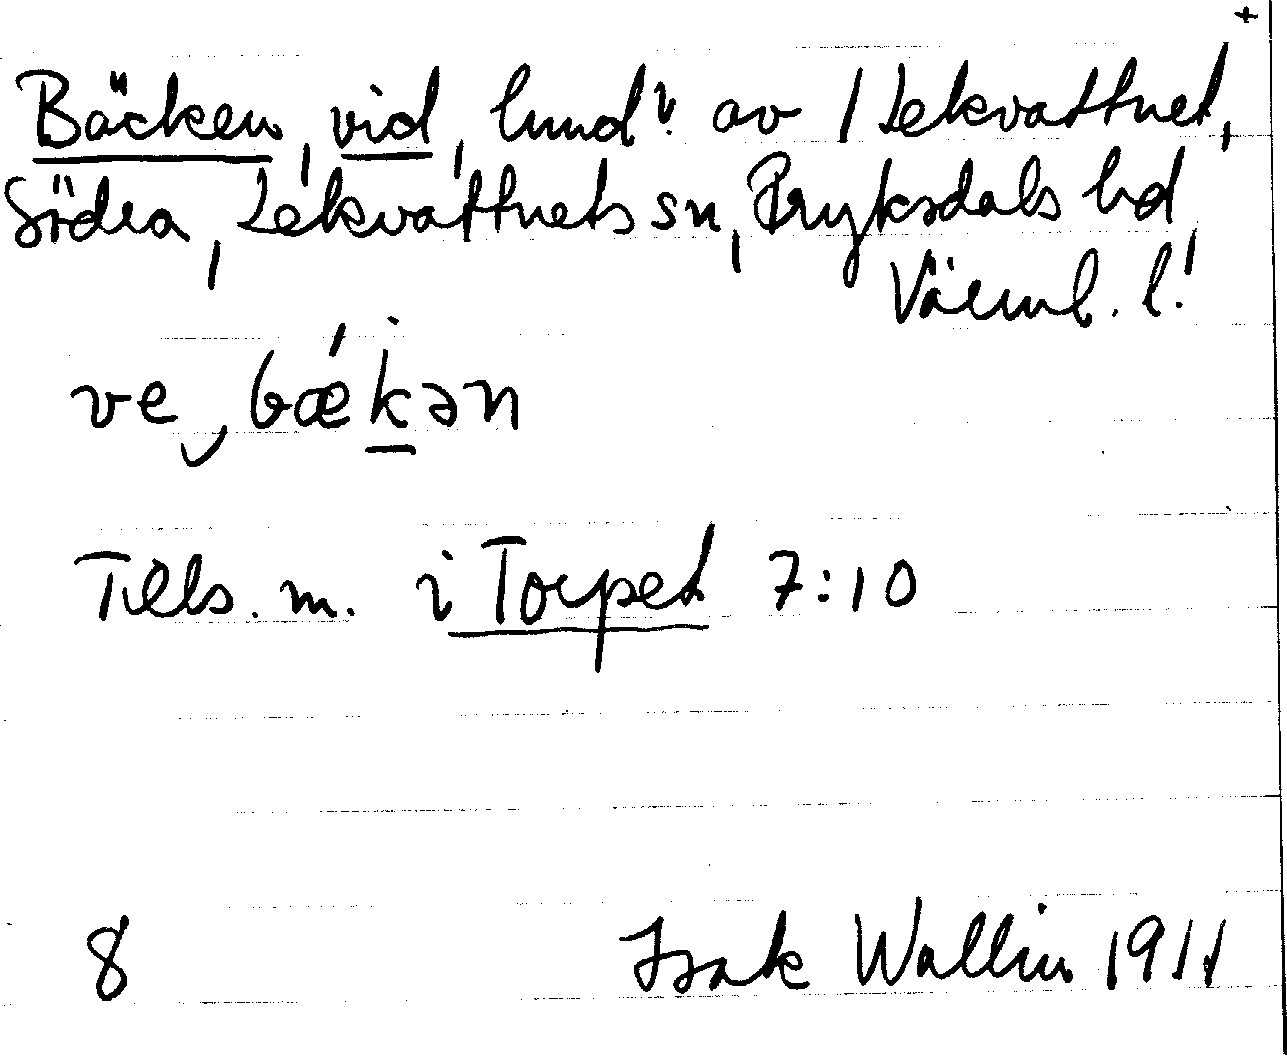 +
Bäcken, vid, lund av 1 Lekvattnet,
Södra, Lekvattnets sn, Fryksdals hd
Värml. l.
ve bǽkən
Tills. m. i Torpet 7:10
8 Isak Wallin 1911